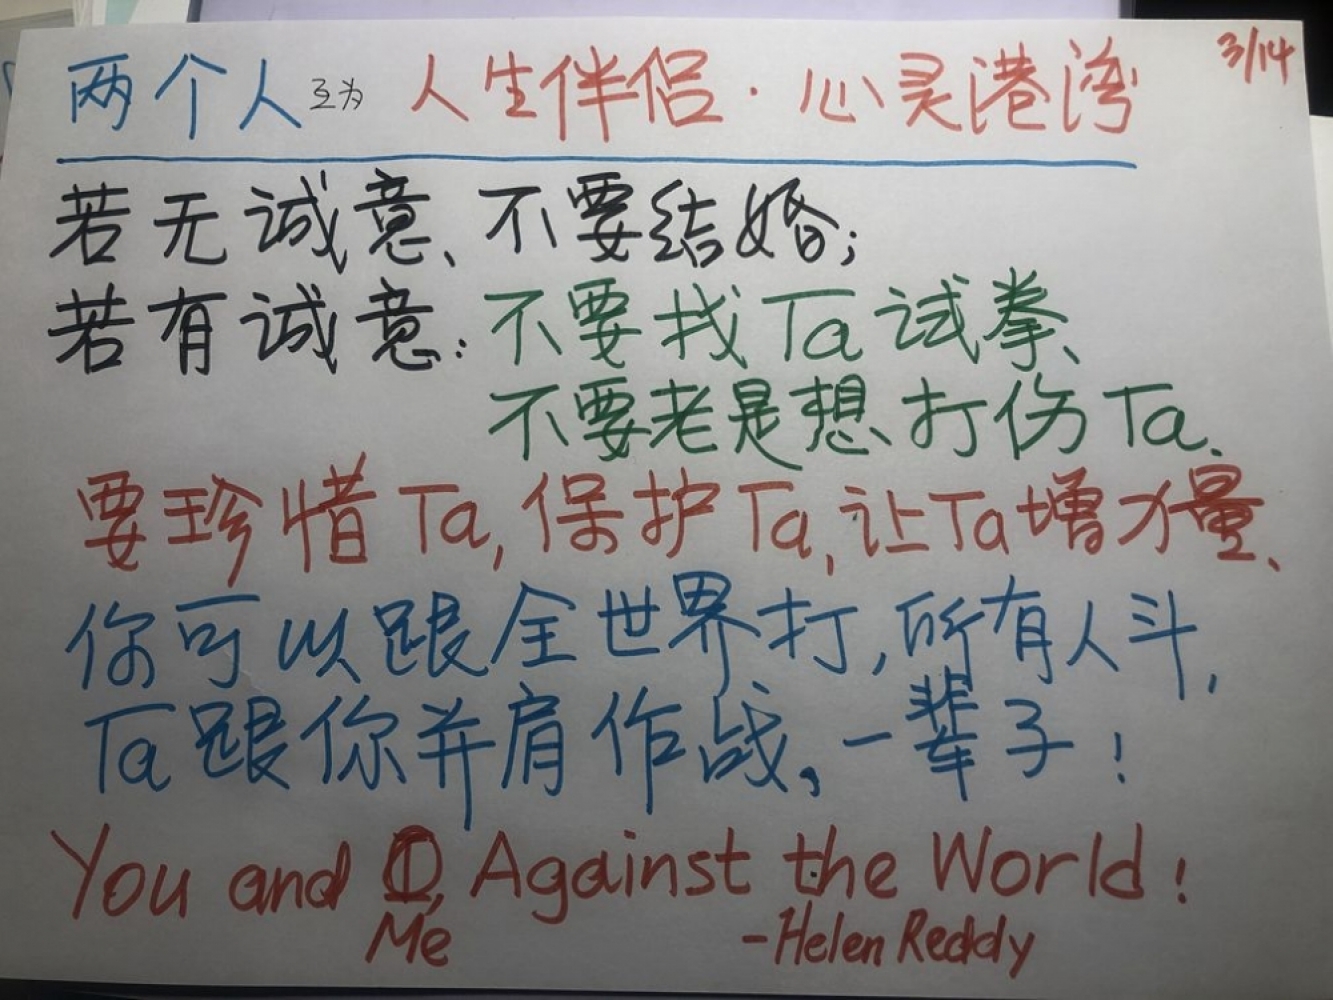 3/14
两个人互为 人生伴侣·心灵港湾
若无诚意、不要结婚;
若有诚意:不要找Ta试拳、
不要老是想打伤Ta.
要珍惜Ta,保护Ta,让Ta增力量、
你可以跟全世界打,所有人斗,
Ta跟你并肩作战。一辈子!
You and I, Against the World!
Me
-Helen Reddy